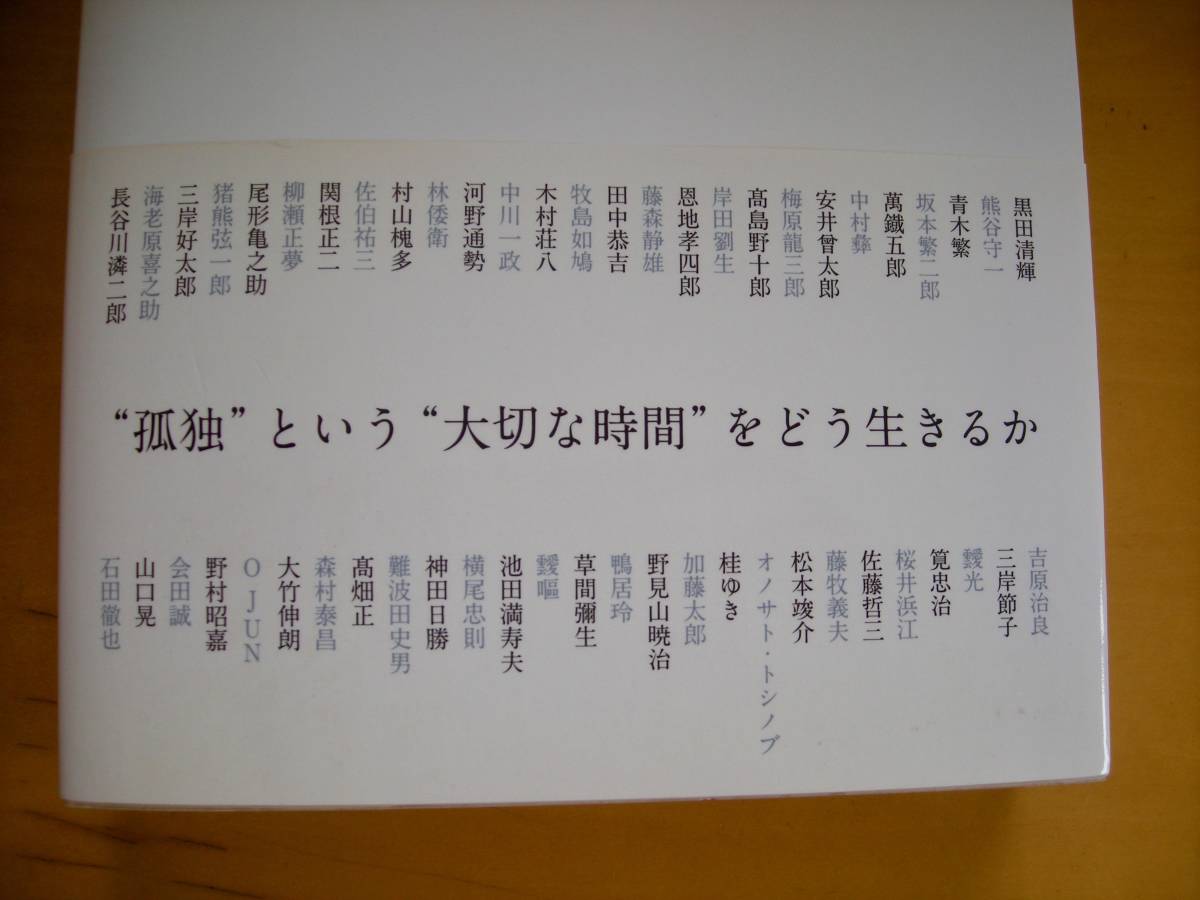 黒田清輝
熊谷守一
青木繁
坂本繁二郎
萬鐵五郎
中村彝
安井曾太郎
梅原龍三郎
髙島野十郎
岸田劉生
恩地孝四郎
藤森静雄
田中恭吉
牧島如鳩
木村荘八
中川一政
河野通勢
林倭衛
村山槐多
佐伯祐三
関根正二
柳瀬正夢
尾形亀之助
猪熊弦一郎
三岸好太郎
海老原喜之助
長谷川潾二郎
“孤独”という“大切な時間”をどう生きるか
吉原治良
三岸節子
靉光
筧忠治
桜井浜江
佐藤哲三
藤牧義夫
松本竣介
オノサト・トシノブ
桂ゆき
加藤太郎
野見山暁治
鴨居玲
草間彌生
靉嘔
池田満寿夫
横尾忠則
神田日勝
難波田史男
髙畑正
森村泰昌
大竹伸朗
O JUN
野村昭嘉
会田誠
山口晃
石田徹也